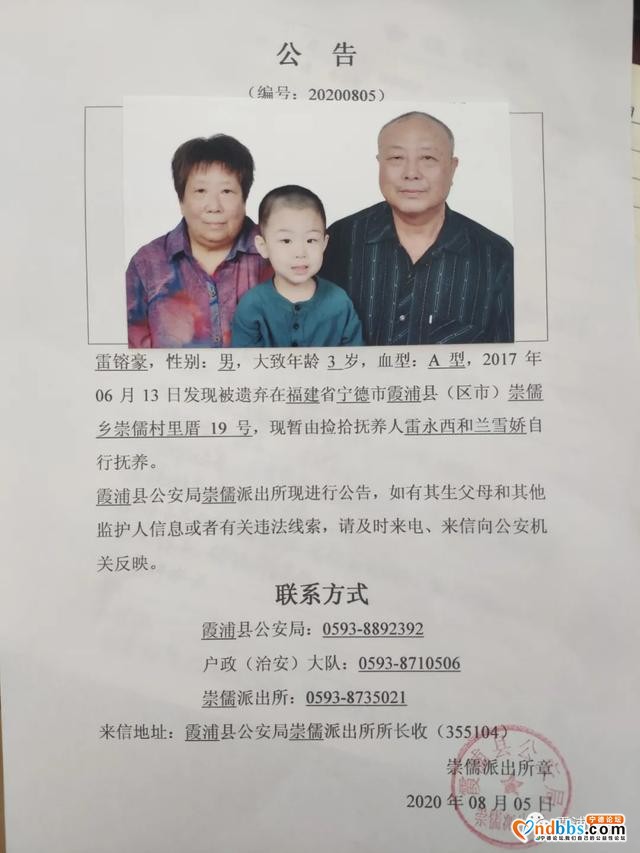 公 告
（编号：20200805）
雷镕豪，性别：男，大致年龄 3 岁，血型：A 型，2017 年
06 月 13 日发现被遗弃在福建省宁德市霞浦县（区市）崇儒
乡崇儒村里厝 19 号，现暂由捡拾抚养人雷永西和兰雪娇自
行抚养。
霞浦县公安局崇儒派出所现进行公告，如有其生父母和其他
监护人信息或者有关违法线索，请及时来电、来信向公安机
关反映。
联系方式
霞浦县公安局：0593-8892392
户政（治安）大队：0593-8710506
崇儒派出所：0593-8735021
来信地址：霞浦县公安局崇儒派出所所长收（355104）
崇儒派出所章
2020 年 08 月 05 日
霞浦县公安局
宁德论坛
ndbbs.com